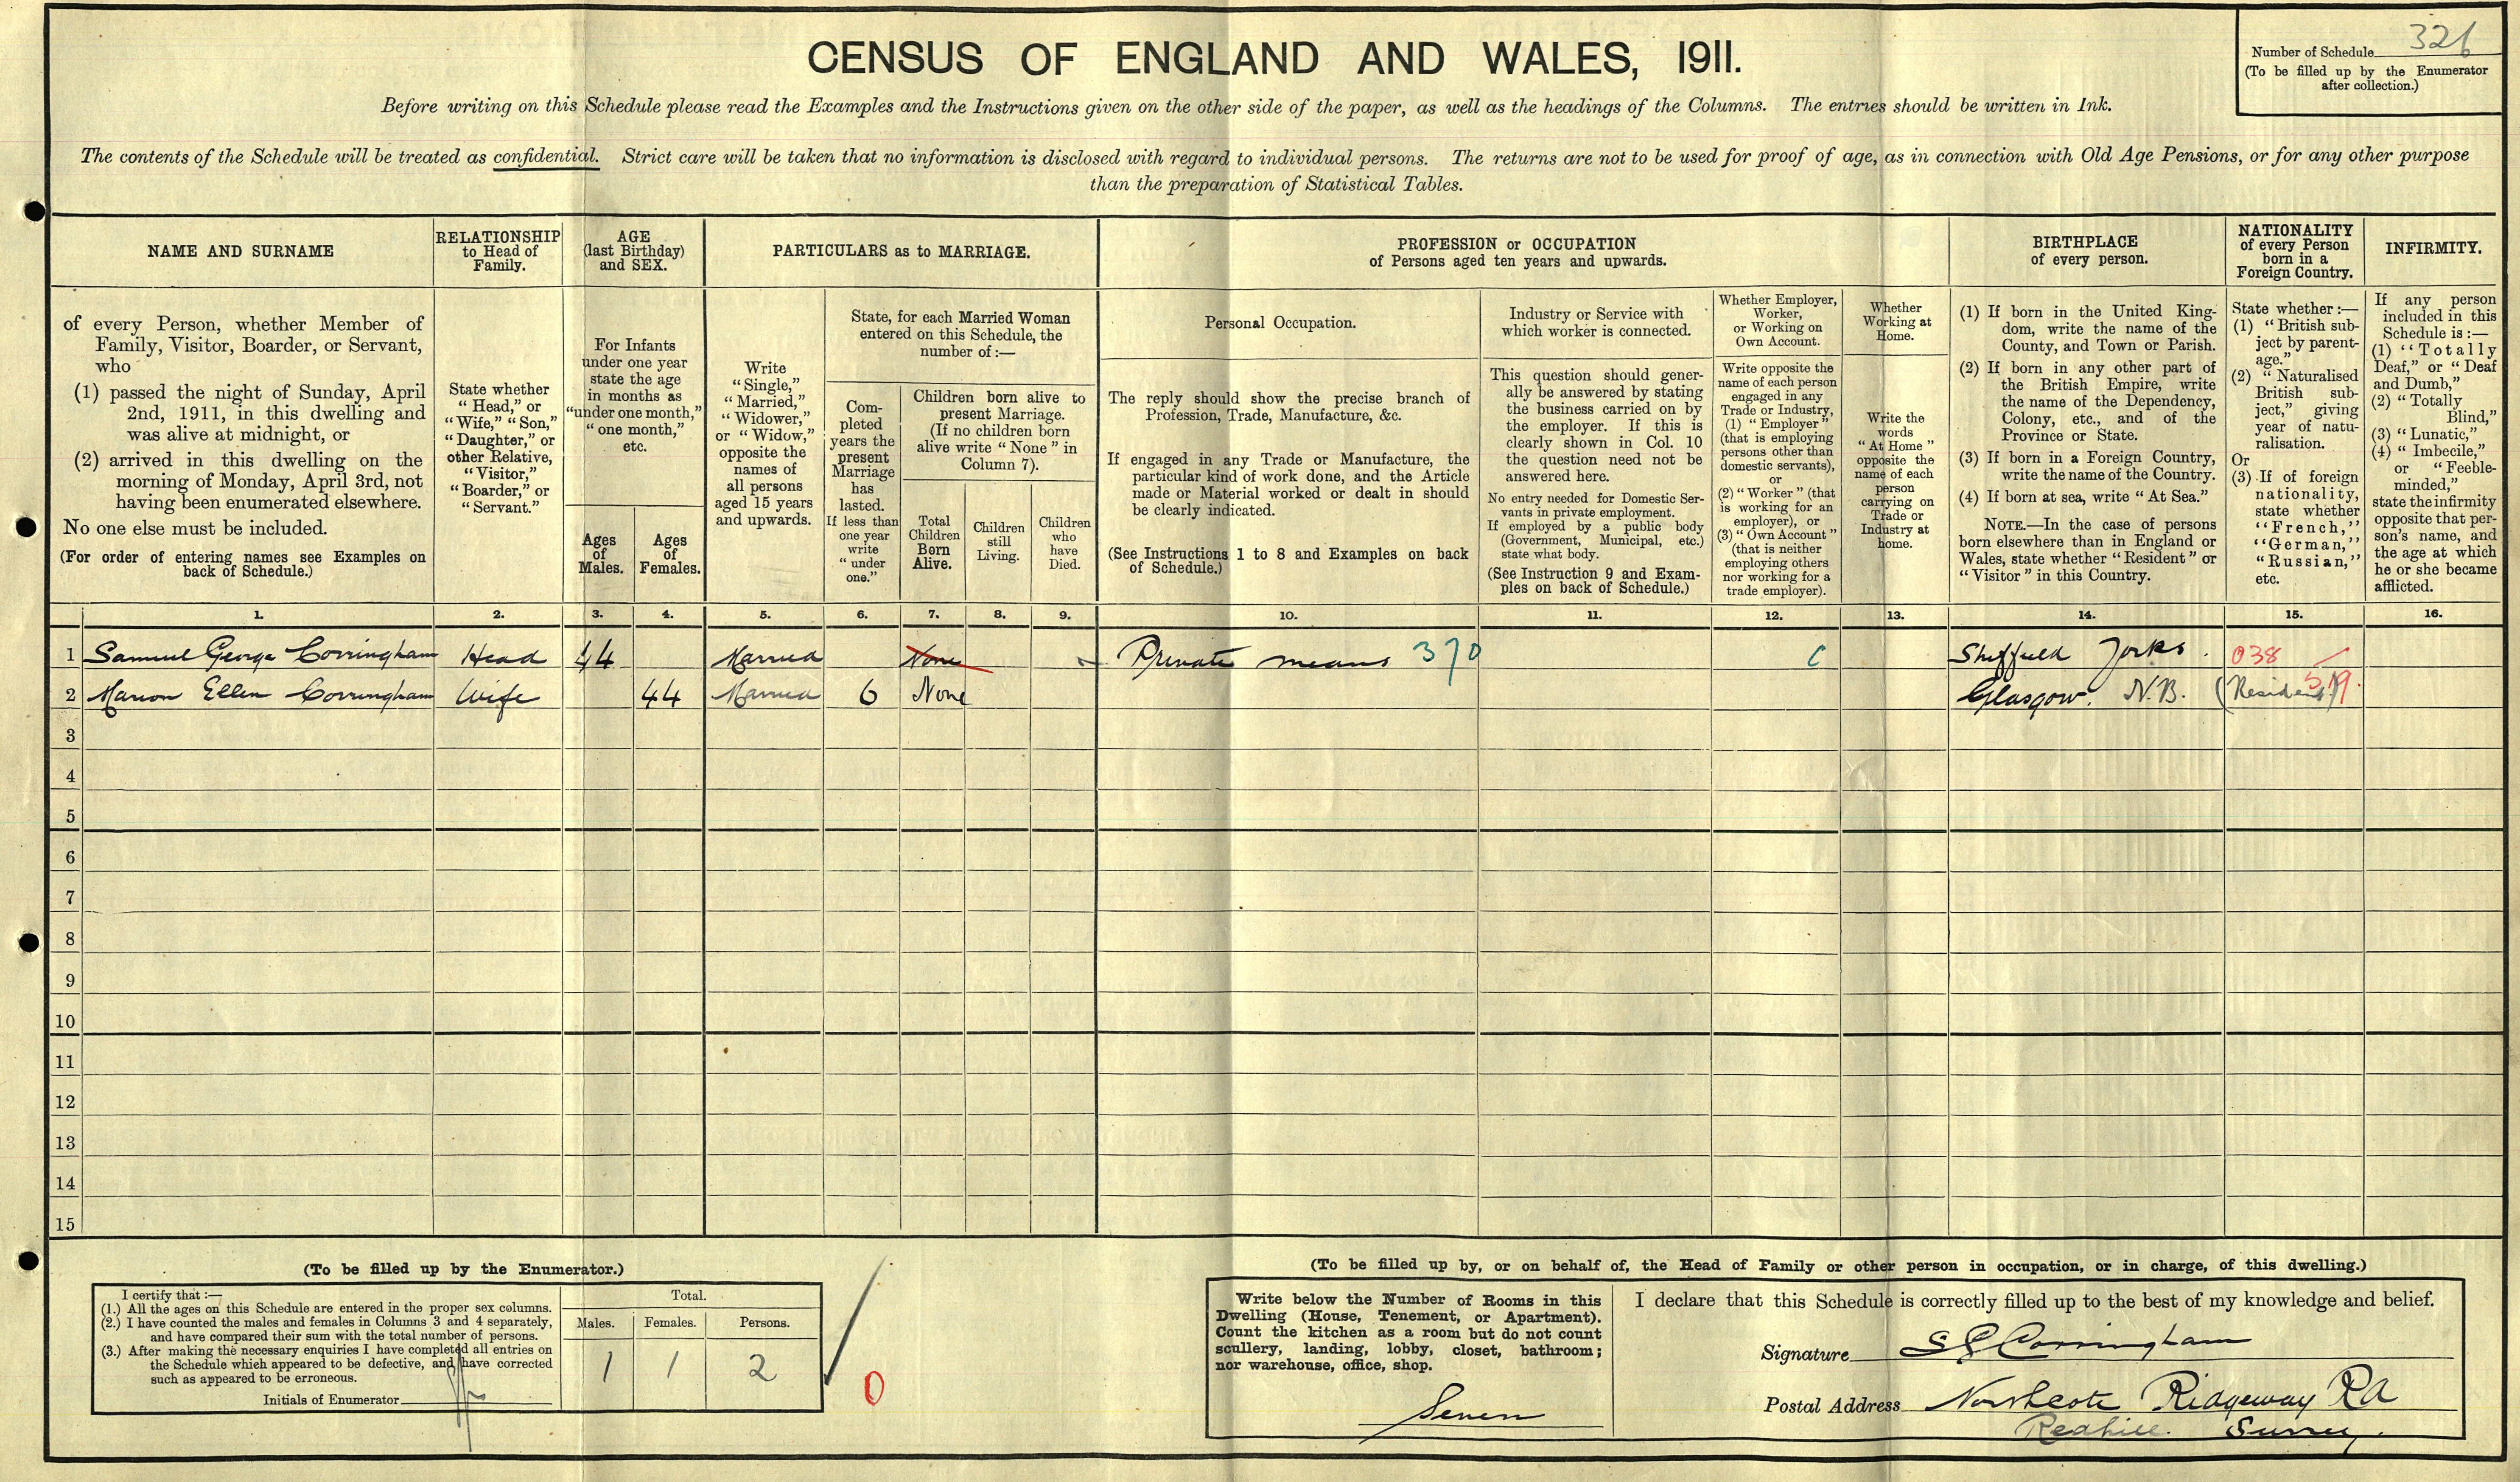 CENSUS OF ENGLAND AND WALES, 1911.
Number of Schedule 326
(To be filled up by the Enumerator
after collection.)
Before writing on this Schedule please read the Examples and the Instructions given on the other side of the paper, as well as the headings of the Columns. The entries should be written in Ink.
The contents of the Schedule will be treated as confidential. Strict care will be taken that no information is disclosed with regard to individual persons. The returns are not to be used for proof of age, as in connection with Old Age Pensions, or for any other purpose
than the preparation of Statistical Tables.
NAME AND SURNAME
of every Person, whether Member of
Family, Visitor, Boarder, or Servant,
who
(1) passed the night of Sunday, April
2nd, 1911, in this dwelling and
was alive at midnight, or
(2) arrived in this dwelling on the
morning of Monday, April 3rd, not
having been enumerated elsewhere.
No one else must be included.
(For order of entering names see Examples on
back of Schedule.)
RELATIONSHIP
to Head of
Family.
State whether
"Head," or
"Wife," "Son,"
"Daughter," or
other Relative,
"Visitor,"
"Boarder," or
"Servant."
AGE
(last Birthday)
and SEX.
For Infants
under one year
state the age
in months as
"under one month,"
"one month,"
etc.
Ages
of
Males.
Ages
of
Females.
PARTICULARS as to MARRIAGE.
Write
"Single,"
"Married,"
"Widower,"
or "Widow,"
opposite the
names of
all persons
aged 15 years
and upwards.
State, for each Married Woman
entered on this Schedule, the
number of :—
Com-
pleted
years the
present
Marriage
has
lasted.
If less than
one year
write
"under
one."
Children born alive to
present Marriage.
(If no children born
alive write "None" in
Column 7).
Total
Children
Born
Alive.
Children
still
Living.
Children
who
have
Died.
PROFESSION or OCCUPATION
of Persons aged ten years and upwards.
Personal Occupation.
The reply should show the precise branch of
Profession, Trade, Manufacture, &c.
If engaged in any Trade or Manufacture, the
particular kind of work done, and the Article
made or Material worked or dealt in should
be clearly indicated.
(See Instructions 1 to 8 and Examples on back
of Schedule.)
Industry or Service with
which worker is connected.
This question should gener-
ally be answered by stating
the business carried on by
the employer. If this is
clearly shown in Col. 10
the question need not be
answered here.
No entry needed for Domestic Ser-
vants in private employment.
If employed by a public body
(Government, Municipal, etc.)
state what body.
(See Instruction 9 and Exam-
ples on back of Schedule.)
Whether Employer,
Worker,
or Working on
Own Account.
Write opposite the
name of each person
engaged in any
Trade or Industry,
(1) "Employer"
(that is employing
persons other than
domestic servants),
or
(2) "Worker" (that
is working for an
employer), or
(3) "Own Account"
(that is neither
employing others
nor working for a
trade employer).
Whether
Working at
Home.
Write the
words
"At Home"
opposite the
name of each
person
carrying on
Trade or
Industry at
home.
BIRTHPLACE
of every person.
(1) If born in the United King-
dom, write the name of the
County, and Town or Parish.
(2) If born in any other part of
the British Empire, write
the name of the Dependency,
Colony, etc., and of the
Province or State.
(3) If born in a Foreign Country,
write the name of the Country.
(4) If born at sea, write "At Sea."
NOTE.—In the case of persons
born elsewhere than in England or
Wales, state whether "Resident" or
"Visitor" in this Country.
NATIONALITY
of every Person
born in a
Foreign Country.
State whether :—
(1) "British sub-
ject by parent-
age."
(2) "Naturalised
British sub-
ject," giving
year of natu-
ralisation.
Or
(3) If of foreign
nationality,
state whether
"French,"
"German,"
"Russian,"
etc.
INFIRMITY.
If any person
included in this
Schedule is :—
(1) "Totally
Deaf," or "Deaf
and Dumb,"
(2) "Totally
Blind,"
(3) "Lunatic,"
(4) "Imbecile,"
or "Feeble-
minded,"
state the infirmity
opposite that per-
son's name, and
the age at which
he or she became
afflicted.
1. 2. 3. 4. 5. 6. 7. 8. 9. 10. 11. 12. 13. 14. 15. 16.
1 Samuel George Corringham Head 44 Married None Private means 370 C Sheffield Yorks. 038
2 Marion Ellen Corringham Wife 44 Married 6 None Glasgow. N.B. (Resident) 519.
3
4
5
6
7
8
9
10
11
12
13
14
15
(To be filled up by the Enumerator.)
I certify that :—
(1.) All the ages on this Schedule are entered in the proper sex columns.
(2.) I have counted the males and females in Columns 3 and 4 separately,
and have compared their sum with the total number of persons.
(3.) After making the necessary enquiries I have completed all entries on
the Schedule which appeared to be defective, and have corrected
such as appeared to be erroneous.
Initials of Enumerator
Total.
Males. Females. Persons.
1 1 2
0
(To be filled up by, or on behalf of, the Head of Family or other person in occupation, or in charge, of this dwelling.)
Write below the Number of Rooms in this
Dwelling (House, Tenement, or Apartment).
Count the kitchen as a room but do not count
scullery, landing, lobby, closet, bathroom;
nor warehouse, office, shop.
Seven
I declare that this Schedule is correctly filled up to the best of my knowledge and belief.
Signature S G Corringham
Postal Address Northcote Ridgeway Rd
Redhill. Surrey.